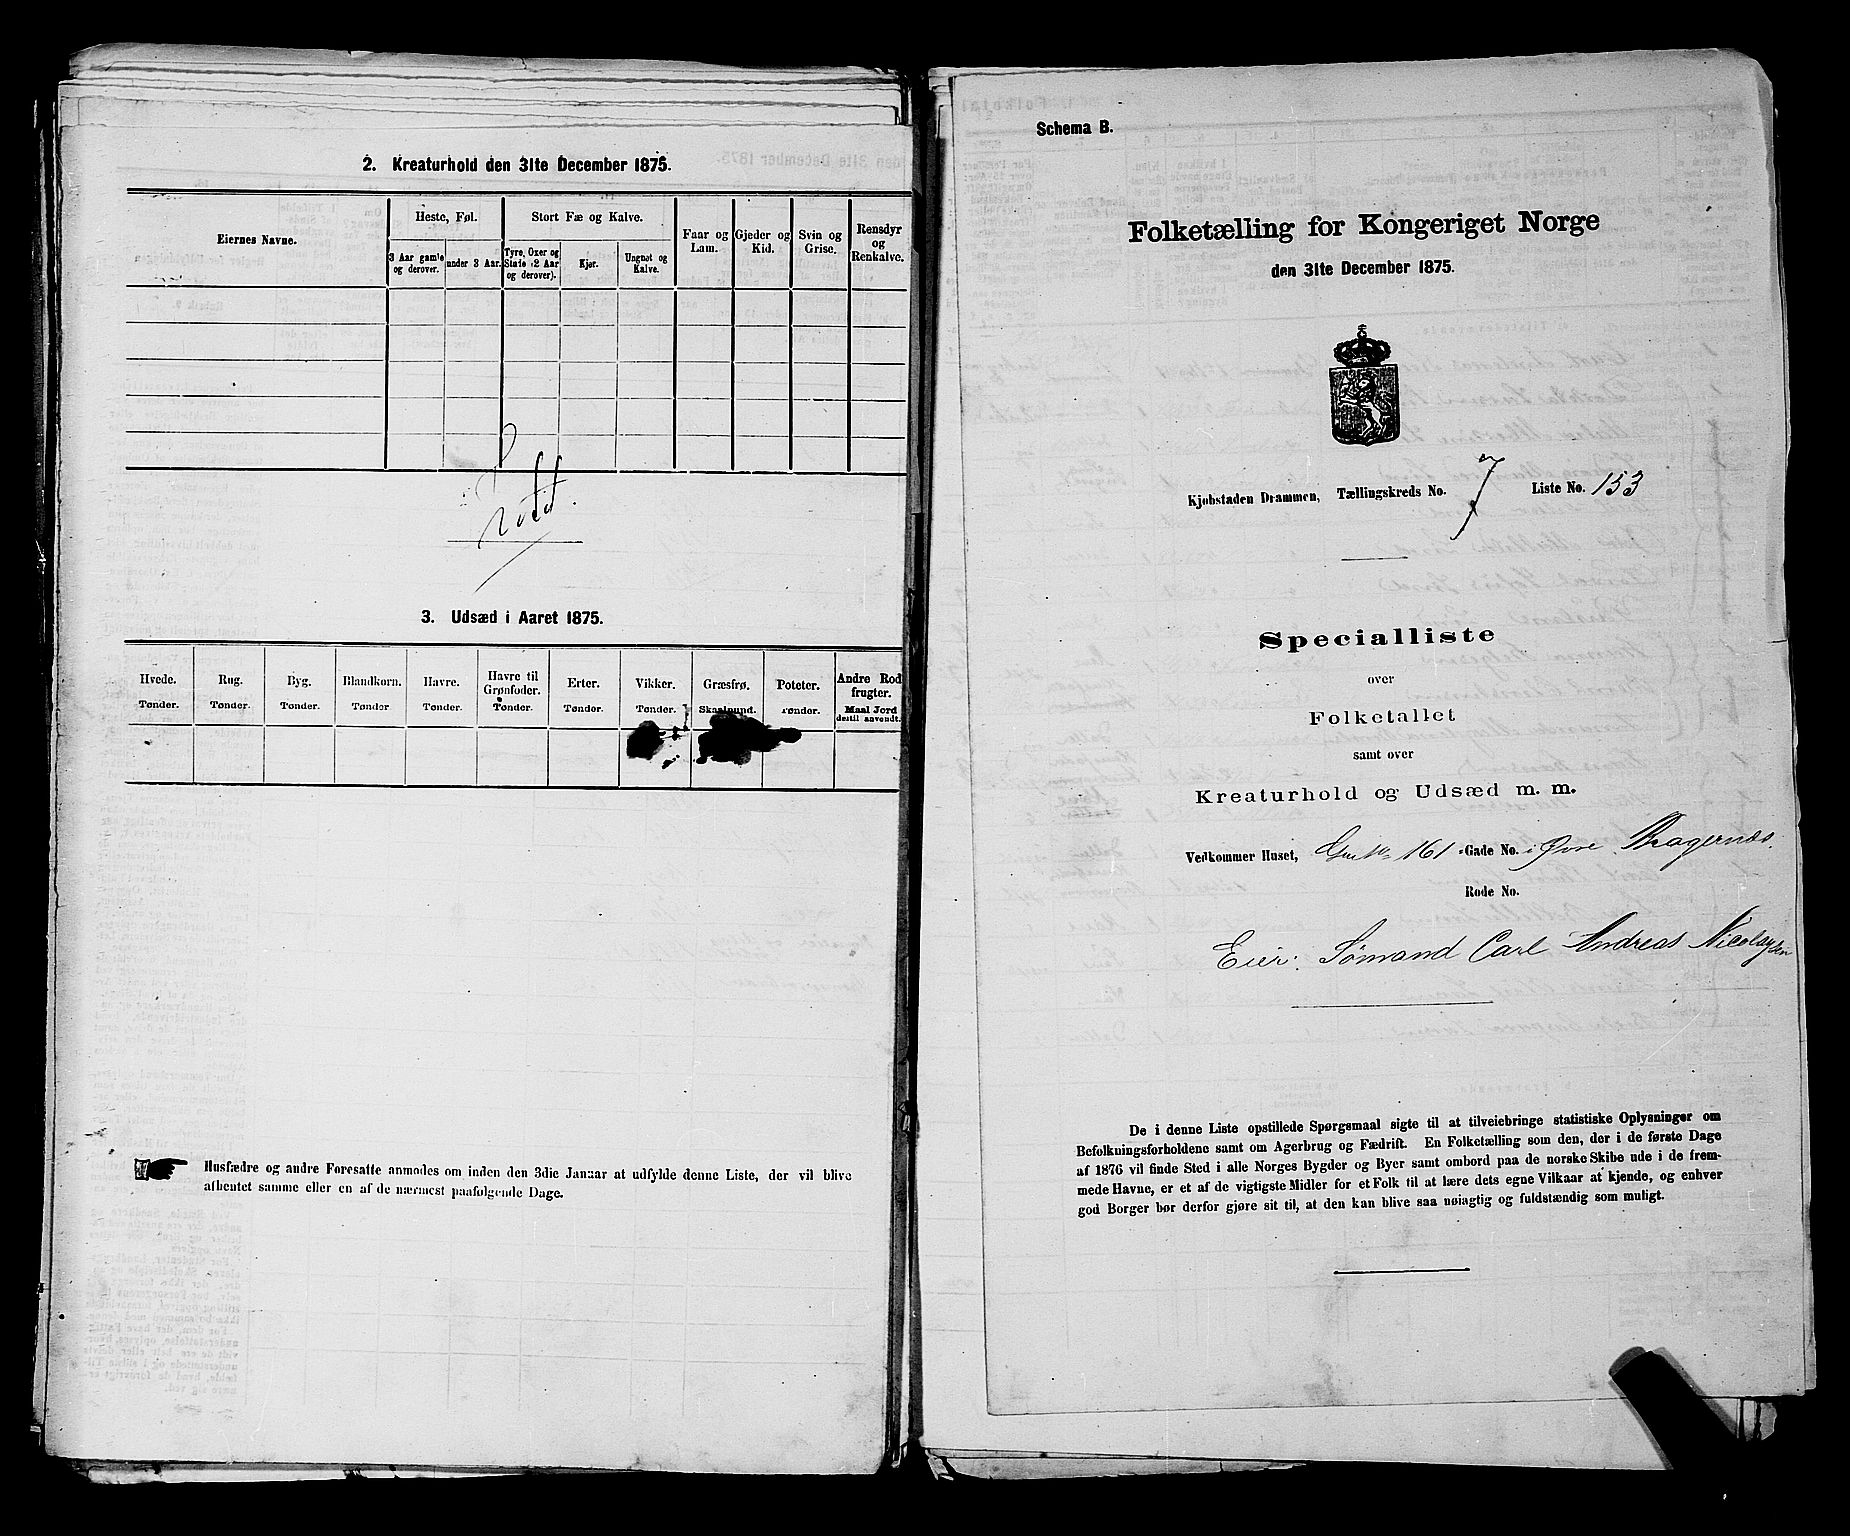 2. Kreaturhold den 31te December 1875.
Eiernes Navne.
Heste, Føl.
3 Aar gamle og derover.
under 3 Aar.
Stort Fæ og Kalve.
Tyre, Oxer og Stude (2 Aar og derover).
Kjør.
Ungnøt og Kalve.
Faar og Lam.
Gjeder og Kid.
Svin og Grise.
Rensdyr og Renkalve.
3. Udsæd i Aaret 1875.
Hvede. Tønder.
Rug. Tønder.
Byg. Tønder.
Blandkorn. Tønder
Havre. Tønder.
Havre til Grønfoder. Tønder.
Erter. Tønder.
Vikker. Tønder.
Græsfrø. Skaalpund.
Poteter. Tønder.
Andre Rodfrugter. Maal Jord dertil anvendt.
Husfædre og andre Foresatte anmodes om inden den 3die Januar at udfylde denne Liste, der vil blive
afhentet samme eller en af de nærmest paafølgende Dage.
Schema B.
Folketælling for Kongeriget Norge
den 31te December 1875.
Kjøbstaden Drammen, Tællingskreds No. 7 Liste No. 153
Specialliste
over
Folketallet
samt over
Kreaturhold og Udsæd m. m.
Vedkommer Huset, 161 Gade No. i Øvre Bragernæs.
Rode No.
Eier: Sømand Carl Andreas Nicolaysen
De i denne Liste opstillede Spørgsmaal sigte til at tilveiebringe statistiske Oplysninger om
Befolkningsforholdene samt om Agerbrug og Fædrift. En Folketælling som den, der i de første Dage
af 1876 vil finde Sted i alle Norges Bygder og Byer samt ombord paa de norske Skibe ude i de frem-
mede Havne, er et af de vigtigste Midler for et Folk til at lære dets egne Vilkaar at kjende, og enhver
god Borger bør derfor gjøre sit til, at den kan blive saa nøiagtig og fuldstændig som muligt.